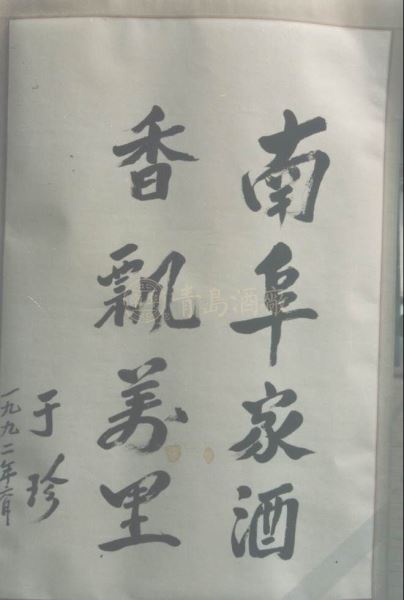 南阜家酒
香飘万里
于珍
一九九二年六月
青島酒廠